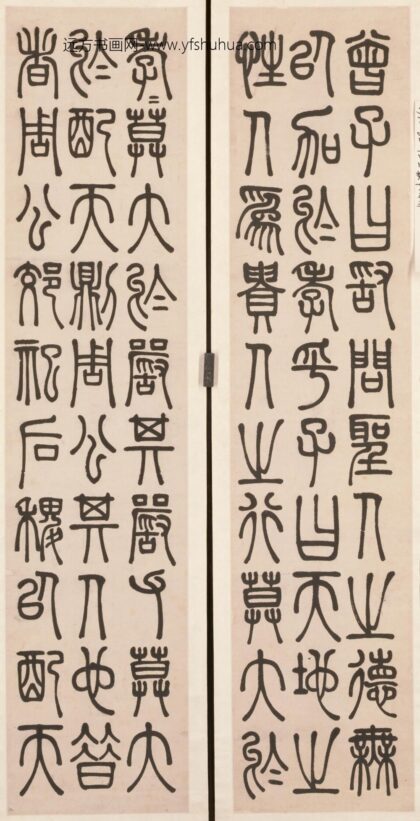 远方书画网 www.yfshuhua.com
曾子曰敢問聖人之德無
以加於孝乎子曰天地之
性人爲貴人之行莫大於
孝〻莫大於嚴其嚴父莫大
於配天則周公其人也昔
者周公郊祀后稷以配天